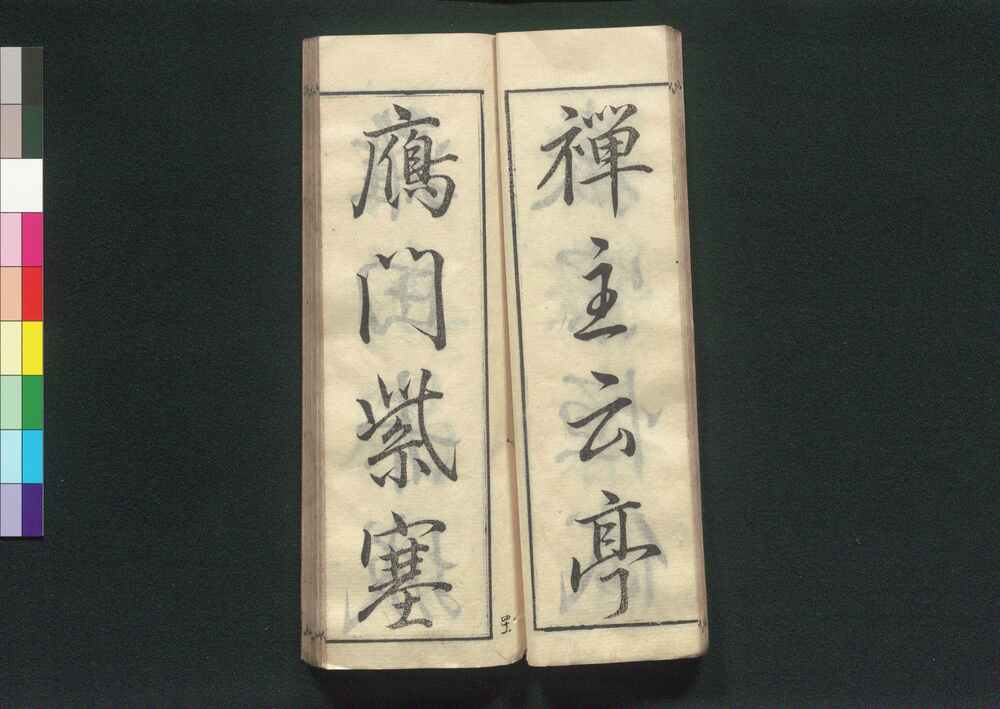 禅主云亭
鴈門紫塞